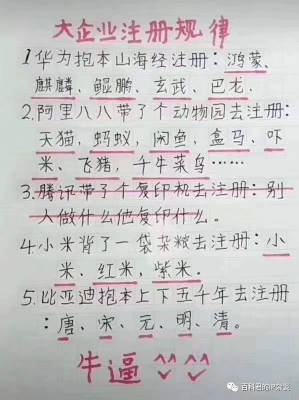 大企业注册规律
1华为抱本山海经注册：鸿蒙、
麒麟、鲲鹏、玄武、巴龙.
2.阿里八八带了个动物园去注册：
天猫，蚂蚁，闲鱼，盒马、吓
米、飞猪，千牛菜鸟……
3.腾讯带了个复印机去注册：别
人做什么他复印什么。
4.小米背了一袋杂粮去注册：小
米、红米，紫米.
5.比亚迪抱本上下五千年去注册
：唐、宋、元、明、清。
牛逼